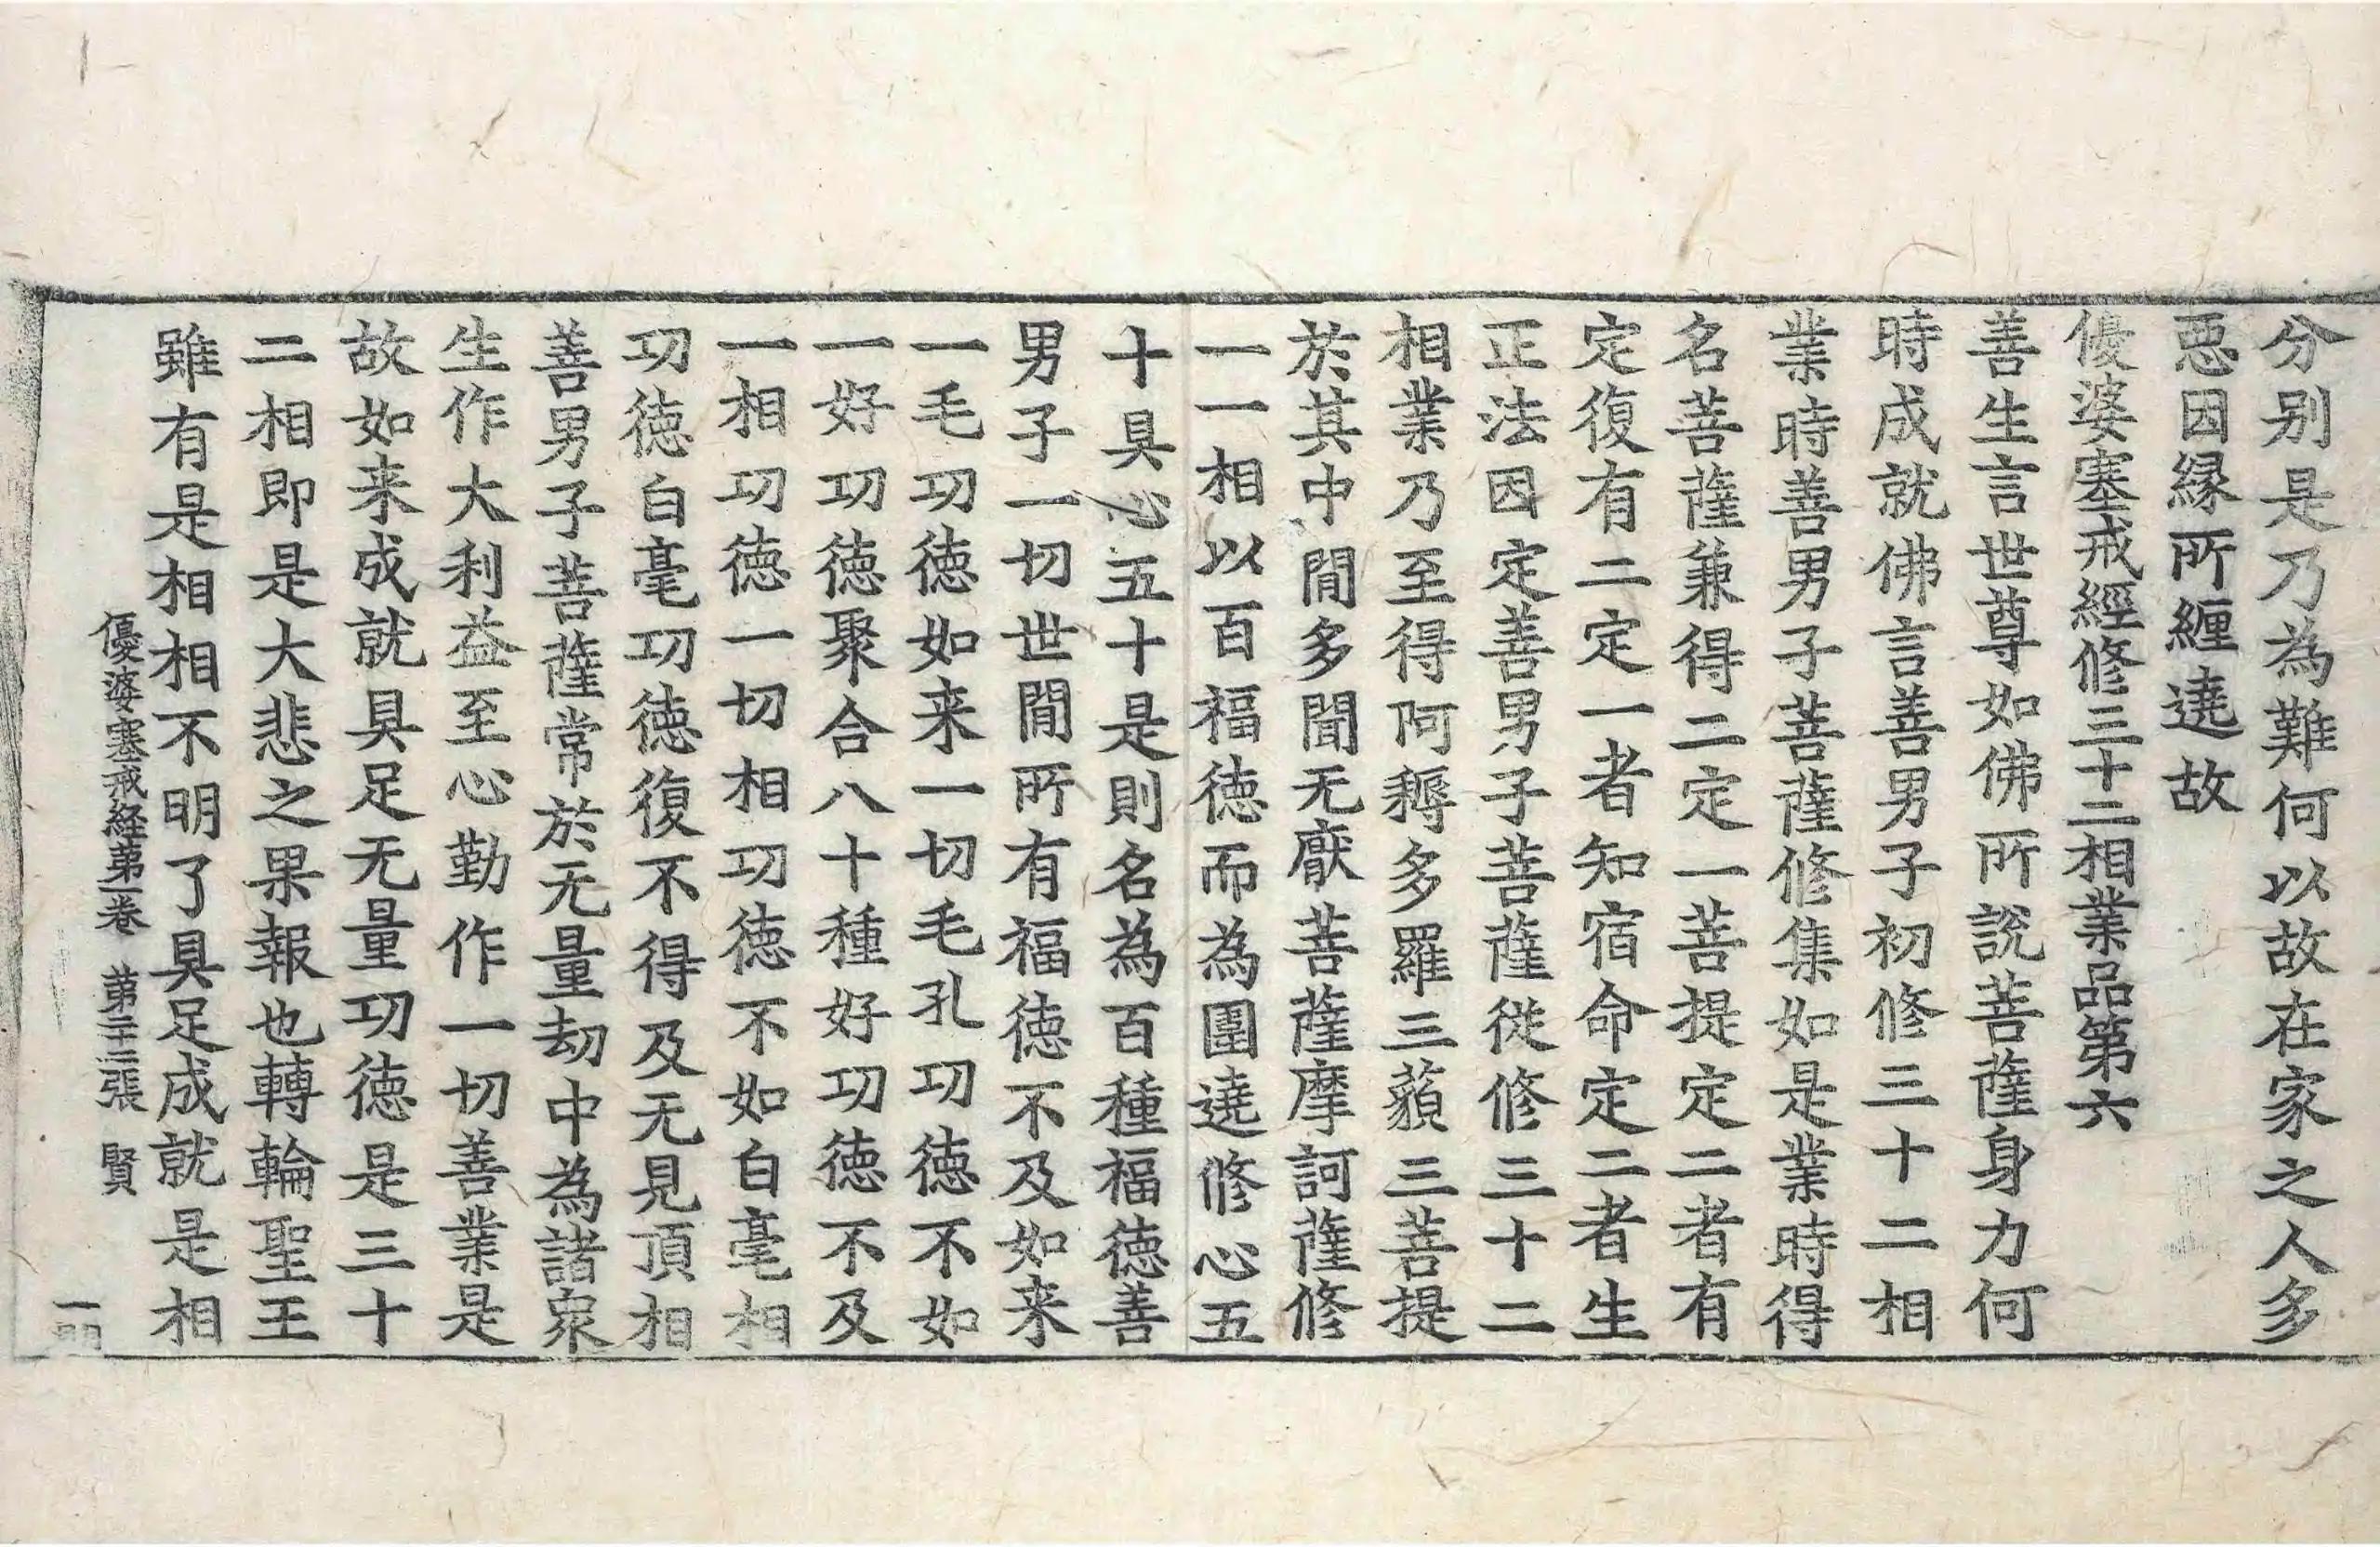 分别是乃為難何以故在家之人多
惡因縁所纏遶故
優婆塞戒經修三十二相業品第六
善生言世尊如佛所說菩薩身力何
時成就佛言善男子初修三十二相
業時善男子菩薩修集如是業時得
名菩薩兼得二定一菩提定二者有
定復有二定一者知宿命定二者生
正法因定善男子菩薩從修三十二
相業乃至得阿耨多羅三藐三菩提
於其中間多聞无厭菩薩摩訶薩修
一一相以百福德而為圍遶修心五
十具心五十是則名為百種福德善
男子一切世間所有福德不及如来
一毛功德如来一切毛孔功德不如
一好功德聚合八十種好功德不及
一相功德一切相功德不如白毫相
功德白毫功德復不得及无見頂相
善男子菩薩常於无量劫中為諸眾
生作大利益至心勤作一切善業是
故如来成就具足无量功德是三十
二相即是大悲之果報也轉輪聖王
雖有是相相不明了具足成就是相
優婆塞戒経第一卷 第二十二張 賢